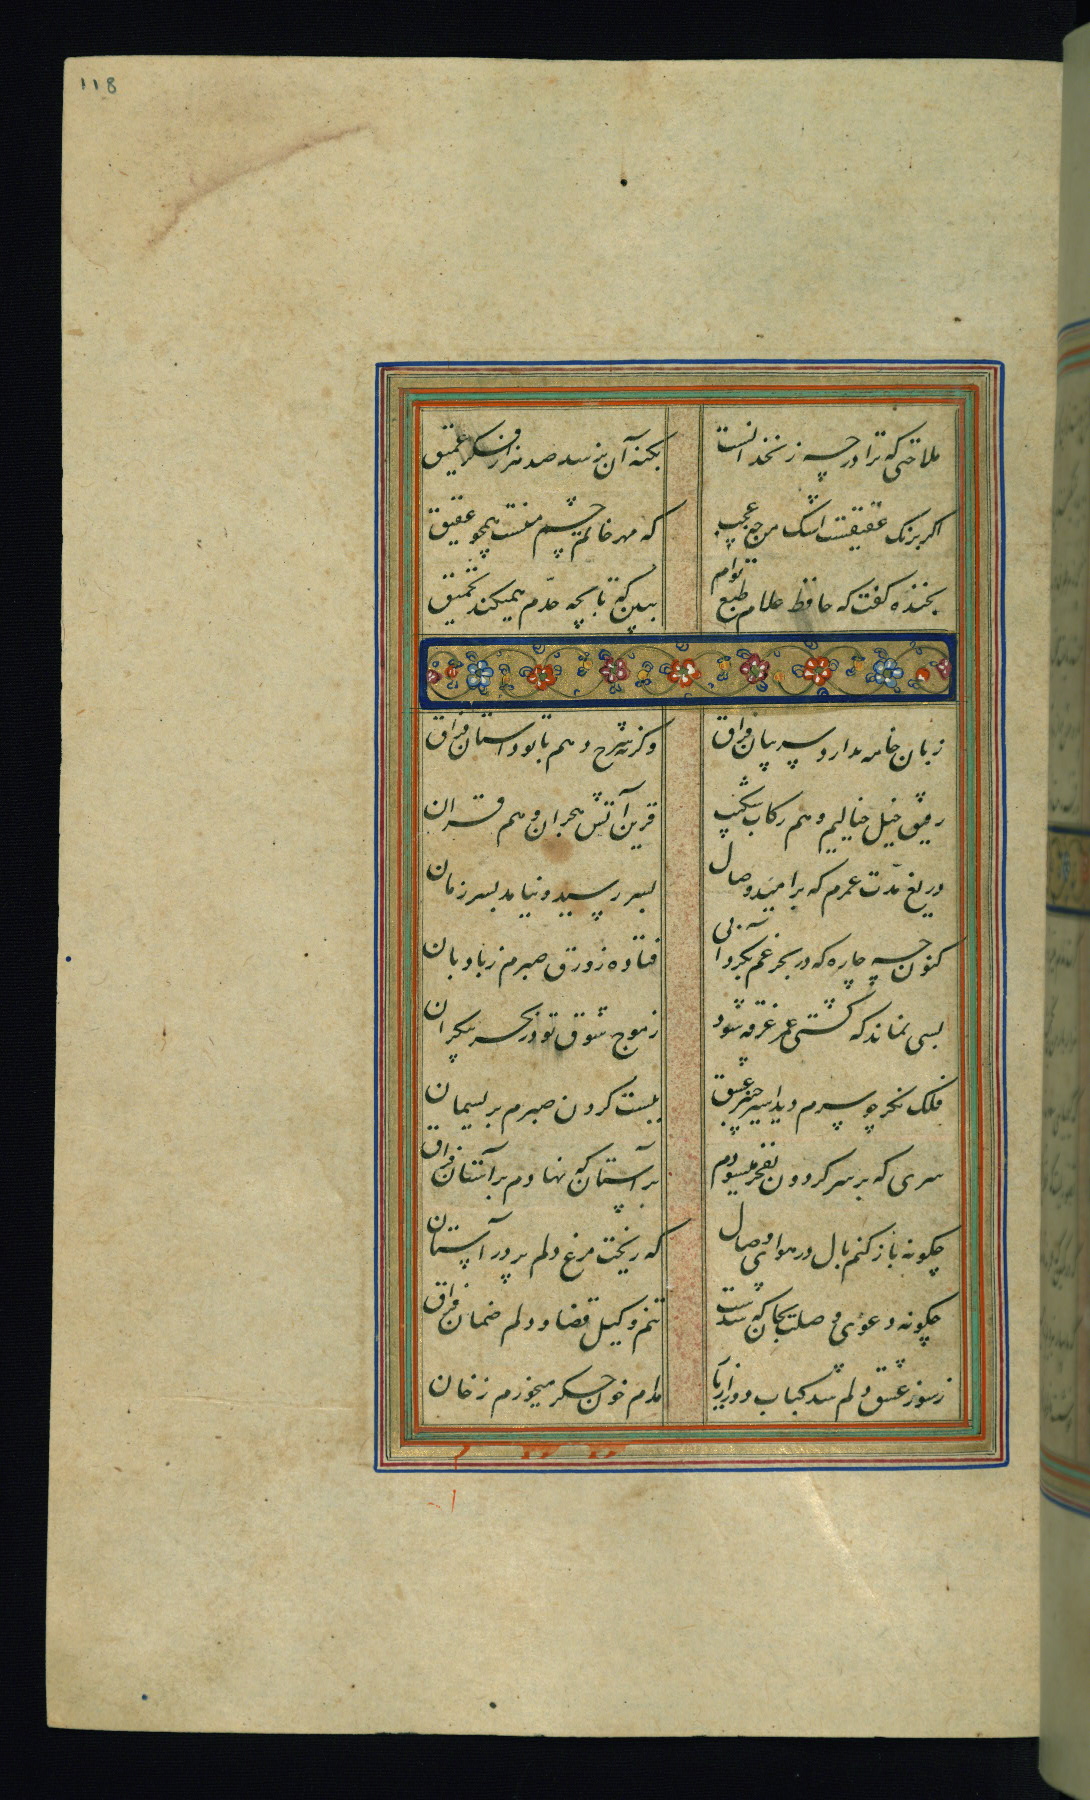 118
ملاحتی که ترا در چه زنخدانست
بکنه آن نرسد صد هزار فکر عمیق
اگر برنک عقیقست اشک من چه عجب
که مهر خاتم چشم منست همچو عقیق
بخنده گفت که حافظ غلام طبع توام
ببین که تا بچه حدّم همیکند تحمیق
زبان خامه ندارد سر بیان فراق
وکرنه شرح دهم با تو داستان فراق
رفیق خیل خیالیم و هم رکاب شکیب
قرین آتش هجران و هم قران
دریغ مدّت عمرم که بر امید وصال
بسر رسید و نیامد بسر زمان
کنون چه چاره که در بحر غم بکردابی
فتاده زورق صبرم ز بادبان
بسی نماند که کشتی عمر غرقه شود
ز موج شوق تو در بحر بیکران
فلک چو سرم دید اسیر چنبر عشق
ببست کردن صبرم بریسمان
سری که بر سر کردون بفخر میسودم
بر آستان که نهادم بر آستان فراق
چکونه باز کنم بال در هوای وصال
که ریخت مرغ دلم پر در آشیان
چکونه دعوی وصلت بجان که شدست
تنم وکیل قضا و دلم ضمان فراق
ز سوز عشق دلم شد کباب دور از یار
مدام خون جکر میخورم ز خان